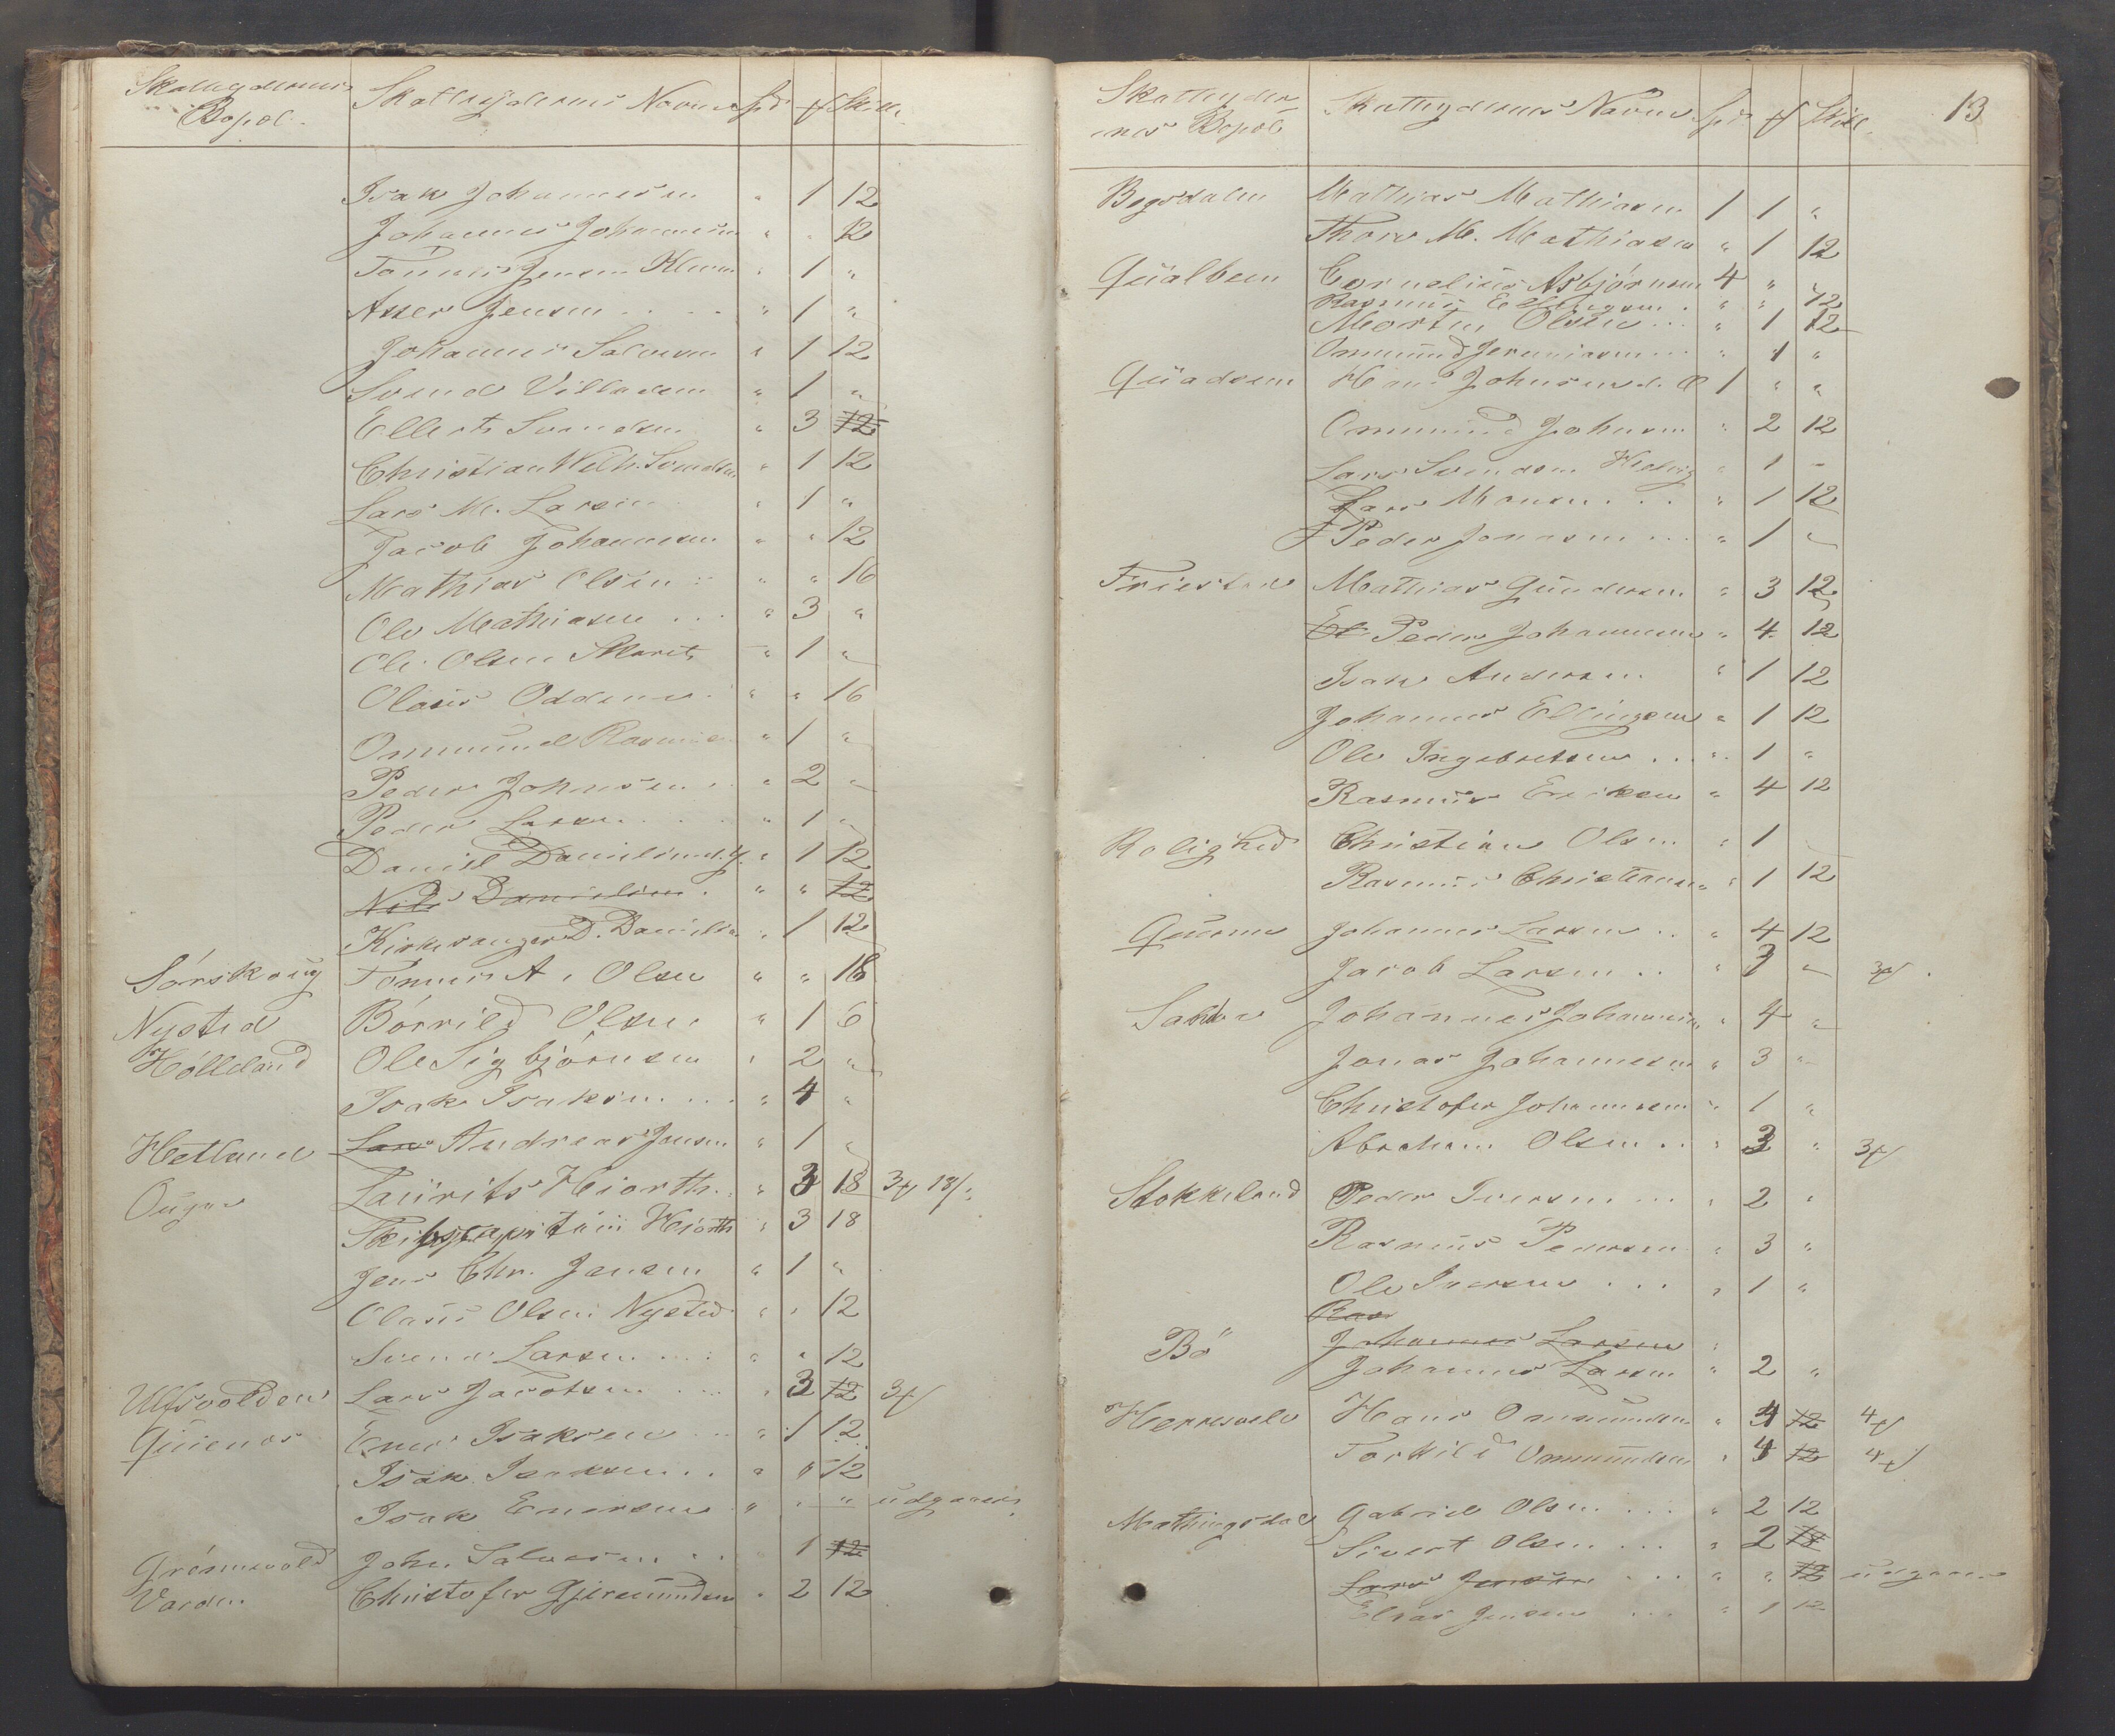 Skatteydernes Bopæl. Skatteydernes Navne Spd. ƒ Skill.
Isak Johannesen " 1 12
Johannes Johannesen " " 12
Tønnes Jensen " 1 "
Asser Jensen . . . . " 1 "
Johannes Salvesen " 1 12
Svend Villadsen " 1 "
Ellert Svendsen " 3 12
Christian Wilh. Svendsen " 1 12
Lars M. Larsen " 1 "
Jacob Johannesen " " 12
Mathias Olsen " " 16
Ole Mathiasen . . . " 3 "
Ole Olsen " 1 "
Olaus " " 16
Ommund Rasmusen " 1 "
Peder Johnsen . . " 2 "
Peder Larsen . . . " 1 "
Daniel Danielsen d. y. " 1 12
Nils Danielsen . " " 12
Kirkesanger D. Danielsen " 1 12
Sørskoug Tønnes A. Olsen " " 18
Nysted Børrild Olsen " 1 6
Hölleland Ole Sigbjørnsen " 2 "
Isak Isaksen . . . " 4 "
Hetland Lars Andreas Jensen " 1 "
Laurits Hiorth . " 3 18 3ƒ 18/.
Skibscapitain Hiorth " 3 18
Jens Chr. Jensen " 1 "
Olaus Olsen Nysted " " 12
Svend Larsen . . . " " 12
Ulfsvolden Lars Jacobsen . . . " 3 12 3ƒ
Isaksen . . " 1 12
Isak Isaksen . . " " 12
Isak " " " udgaaer.
Grönnevold John Salvesen . . 1 12
Varden Christofer Gjermundsen " 2 12
13
Skatteydernes Bopæl Skatteydernes Navne Spd ƒ Skill.
Mathias Mathiasen 1 1 "
M. Mathiasen " 1 12
Qualbein Cornelius Asbjørnsen 4 "
Rasmus Ellingsen . " " 12
Morten Olsen . . . " 1 12
Ommund Jeremiasen . . . " 1 "
Hans Johnsen d. Æ 1 " "
Ommund Johnsen " 2 12
Lars Svendsen " 1 "
Lars Monsen . . . " 1 12
Peder Jonassen . . . " 1 "
Friestad Mathias Gundersen " 3 12
Peder Johannesen " 4 12
Isak Andersen " 1 12
Johannes Ellingsen " 1 12
Ole Ingebretsen . . . " 1 "
Rasmus Eriksen " 4 12
Rolighed Christian Olsen " 1
Rasmus Christiansen " 1 12
Johannes Larsen . . " 4 12
Jacob Larsen . . " 3 " 3ƒ .
Johannes Johannesen " 4 "
Jonas Johannesen " 3 "
Christofer Johannesen " 1 "
Abraham Olsen . . " 3 " 3ƒ
Stokkeland Peder Iversen . . . " 2 "
Rasmus Pedersen " 3 "
Ole Iversen . . . " 1 "
Ras
Bö Johannes Larsen "
Johannes Larsen " 2 "
Hans Ommundsen " 4 12 4ƒ
Torkild Ommundsen " 4 12 4ƒ
Mathingsdal Gabriel Olsen . . . " 2 12
Sivert Olsen . . . " 2 12
Lars Jensen . . . " " 12 udgaaer
Elias Jensen . . . " 1 12